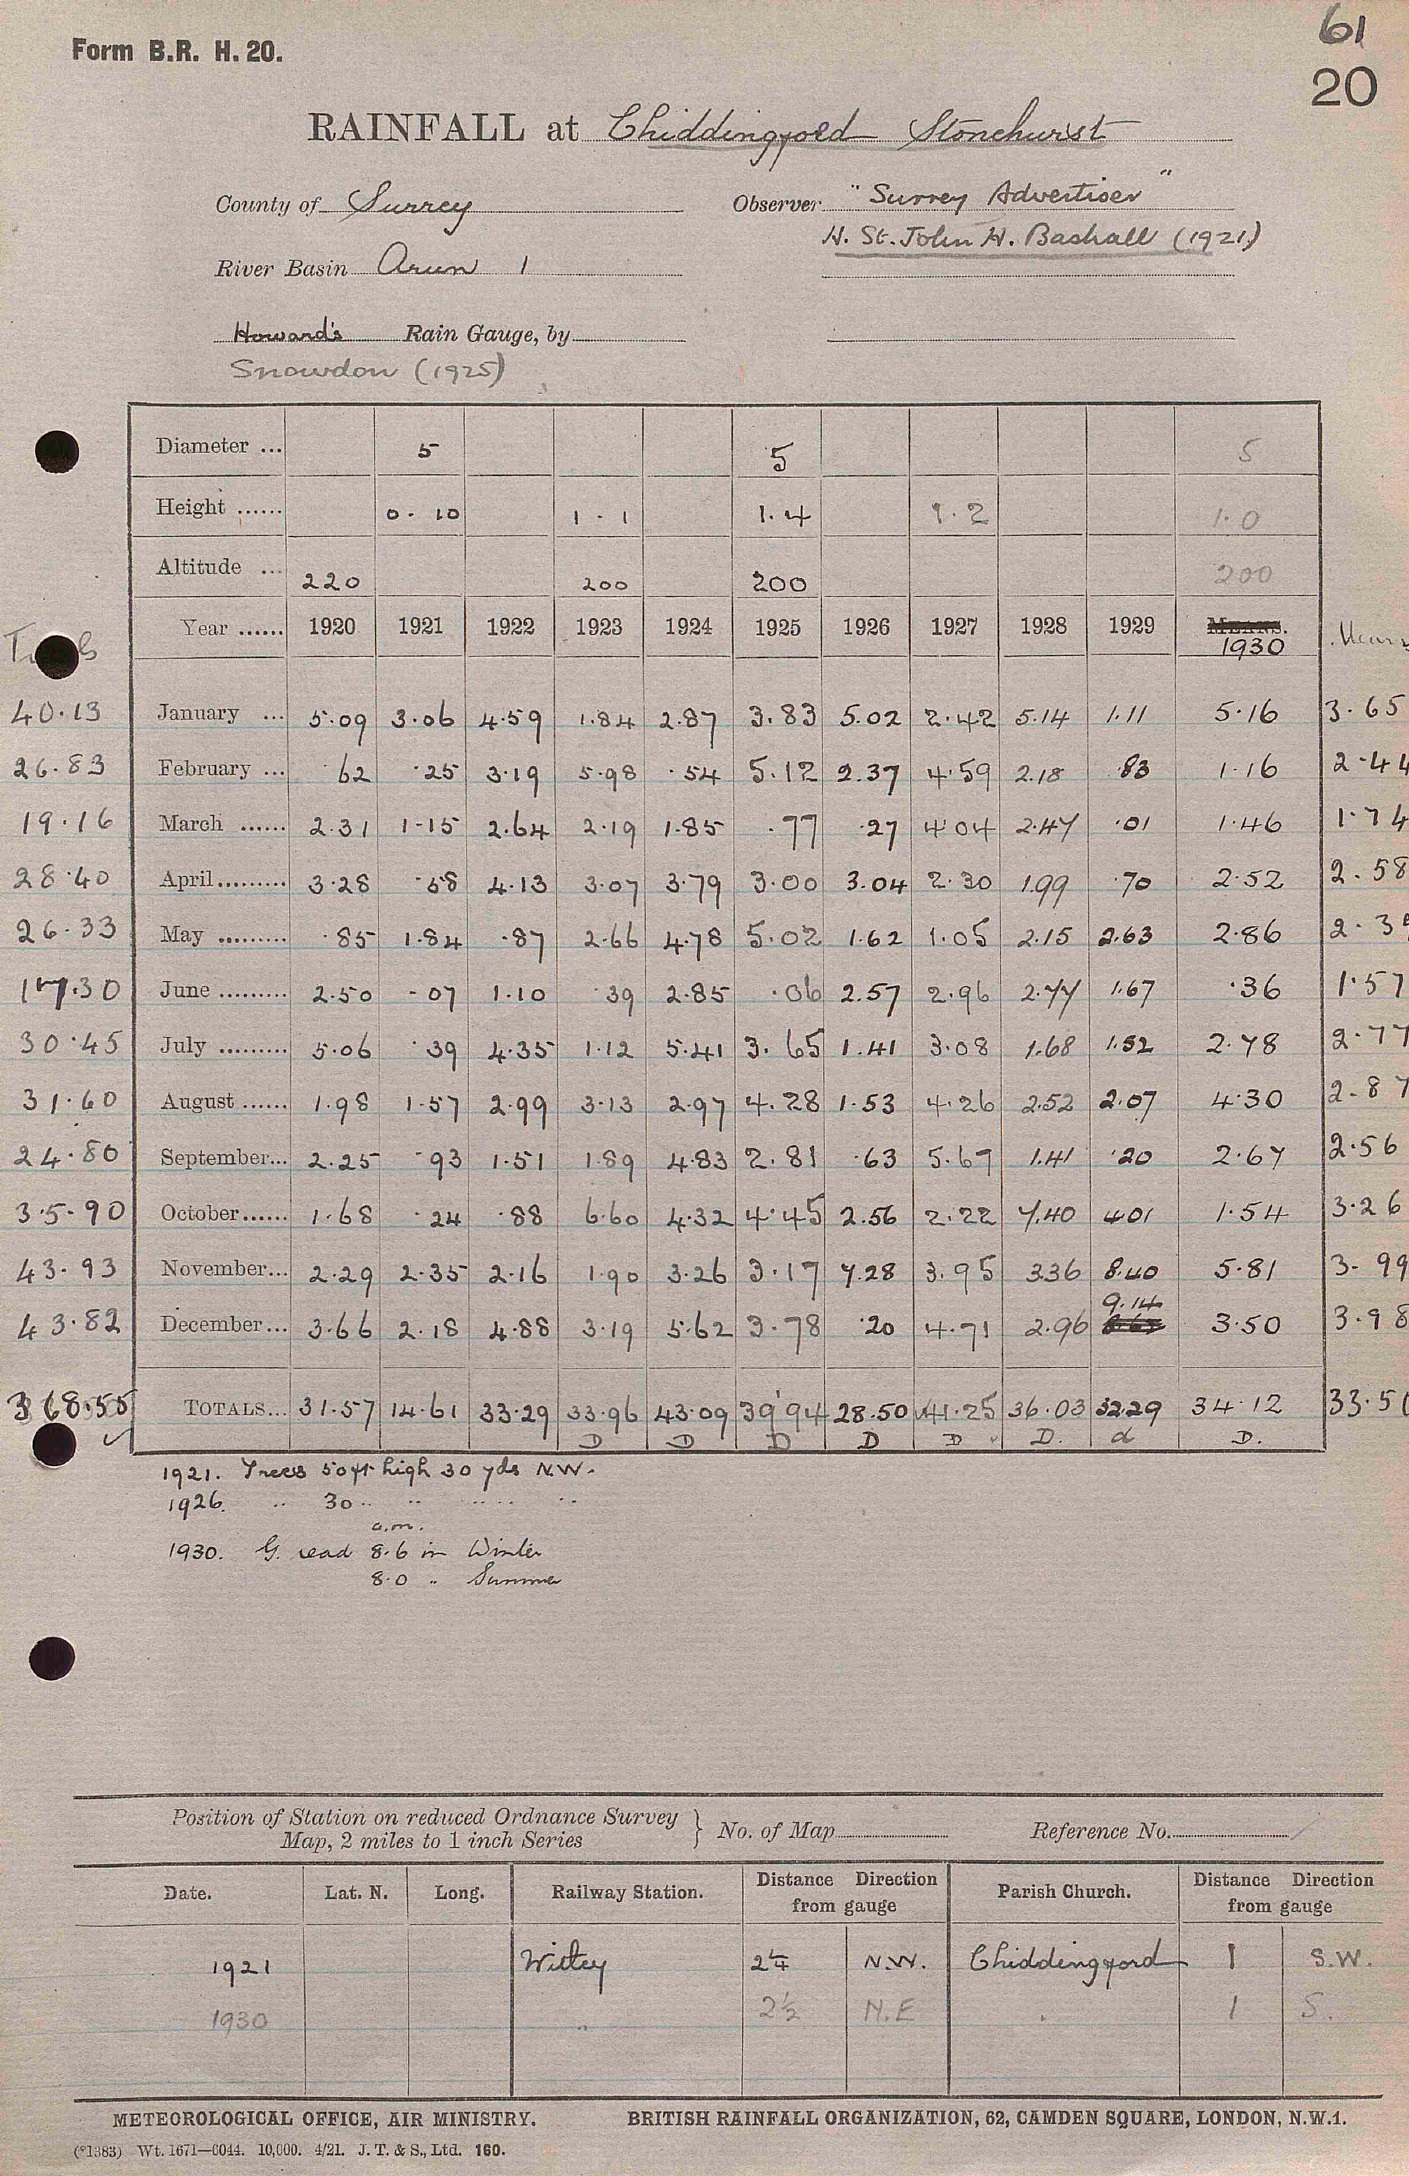 61
Form B.R. H. 20.
20
RAINFALL at Chiddingfold Stonehurst
County of Surrey Observer "Surrey Advertiser"
H. St. John H. Bashall (1921)
River Basin Arun 1
Howard's Rain Gauge, by
Snowdon (1925)
Diameter ... 5 5 5
Height ...... 0 - 10 1 - 1 1.4 1.2 1.0
Altitude ... 220 200 200 200
Year ...... 1920 1921 1922 1923 1924 1925 1926 1927 1928 1929 MEANS. 1930
40.13 January ... 5.09 3.06 4.59 1.84 2.87 3.83 5.02 2.42 5.14 1.11 5.16 3.65
26.83 February ... .62 .25 3.19 5.98 .54 5.12 2.37 4.59 2.18 .83 1.16 2.44
19.16 March ...... 2.31 1.15 2.64 2.19 1.85 .77 .27 4.04 2.47 .01 1.46 1.74
28.40 April......... 3.28 .58 4.13 3.07 3.79 3.00 3.04 2.30 1.99 .70 2.52 2.58
26.33 May ......... .85 1.84 .87 2.66 4.78 5.02 1.62 1.05 2.15 2.63 2.86
17.30 June ......... 2.50 .07 1.10 .39 2.85 .06 2.57 2.96 2.77 1.67 .36 1.57
30.45 July ......... 5.06 .39 4.35 1.12 5.41 3.65 1.41 3.08 1.68 1.52 2.78 2.77
31.60 August ...... 1.98 1.57 2.99 3.13 2.97 4.28 1.53 4.26 2.52 2.07 4.30 2.87
24.80 September... 2.25 .93 1.51 1.89 4.83 2.81 .63 5.67 1.41 .20 2.67 2.56
35.90 October...... 1.68 .24 .88 6.60 4.32 4.45 2.56 2.22 7.40 4.01 1.54 3.26
43.93 November... 2.29 2.35 2.16 1.90 3.26 3.17 7.28 3.95 3.36 8.40 5.81 3.99
9.14
43.82 December... 3.66 2.18 4.88 3.19 5.62 3.78 .20 4.71 2.96 3.50 3.98
368.55 TOTALS... 31.57 14.61 33.29 33.96 43.09 39.94 28.50 41.25 36.03 32.29 34.12
D D D D D D. d D.
1921. Trees 50ft high 30 yds N.W.
1926. .. 30 .. .. .. .. ..
a.m.
1930. G. read 8.6 in Winter
8.0 .. Summer
Position of Station on reduced Ordnance Survey
Map, 2 miles to 1 inch Series } No. of Map Reference No.
Date. Lat. N. Long. Railway Station. Distance Direction from gauge Parish Church. Distance Direction from gauge
1921 Witley 2¼ N.W. Chiddingfold 1 S.W.
1930 .. 2½ N.E . 1 S.
METEOROLOGICAL OFFICE, AIR MINISTRY. BRITISH RAINFALL ORGANIZATION, 62, CAMDEN SQUARE, LONDON, N.W.1.
(*1383) Wt. 1671—6044. 10,000. 4/21. J. T. & S., Ltd. 160.